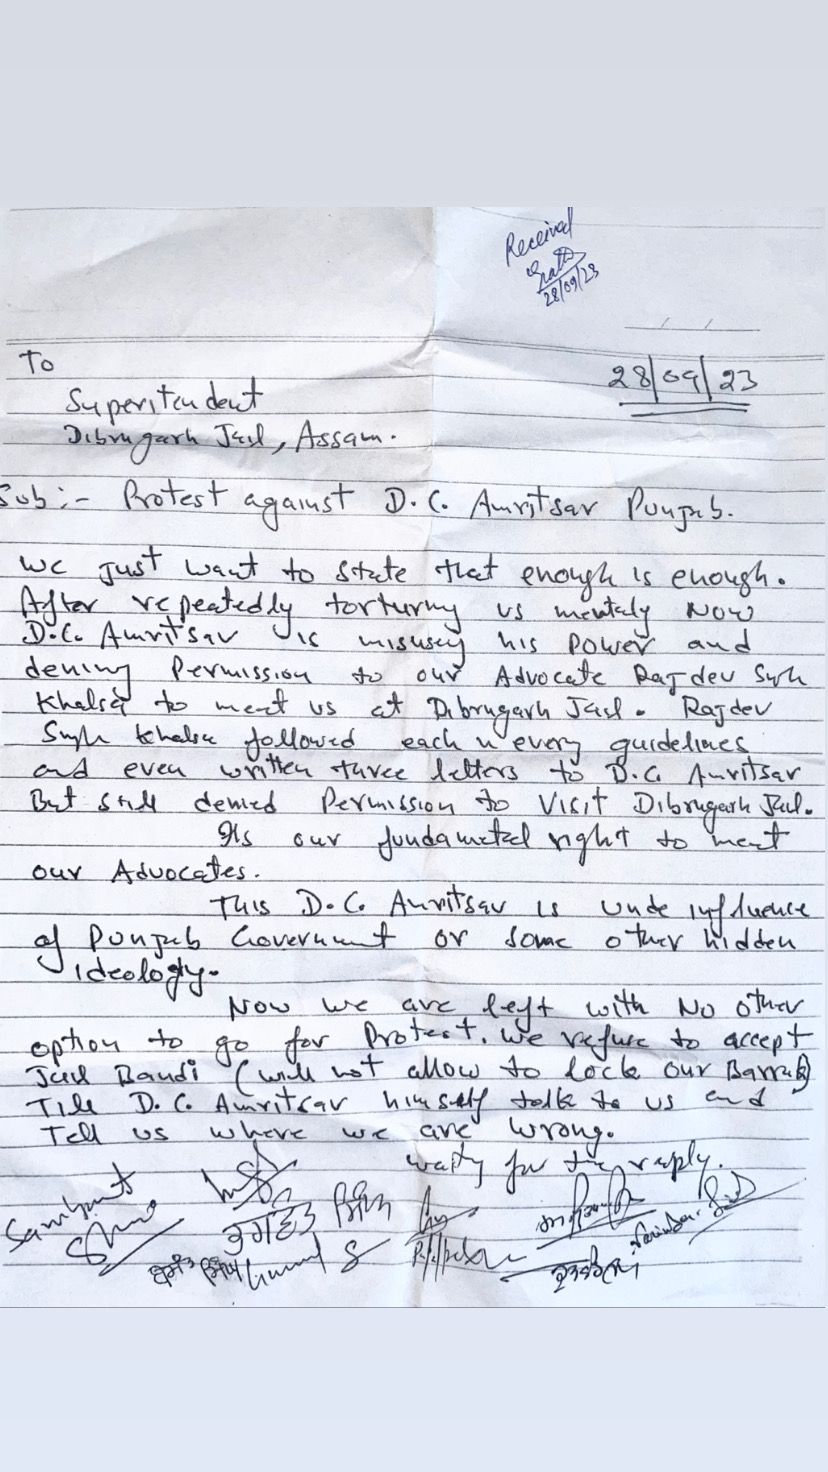 Received
28/09/23
To
28/09/23
Superitendent
Dibrugarh Jail, Assam.
Sub:- Protest against D.C. Amritsar Punjab.
We just want to state that enough is enough.
After repeatedly torturing us mentaly Now
D.C. Amritsar is misusing his power and
dening Permission to our Advocate Rajdev Singh
Khalsa to meet us at Dibrugarh Jail. Rajdev
Singh Khalsa followed each n every guidelines
and even written three letters to D.C. Amritsar
But still denied Permission to Visit Dibrugarh Jail.
Its our fundamental right to meet
our Advocates.
This D.C. Amritsar is unde influence
of Punjab Government or some other hidden
ideology.
Now we are left with No other
option to go for Protest. We refuse to accept
Jail Bandi (will not allow to lock our Barrak)
Till D.C. Amritsar himself talk to us and
Tell us where we are wrong.
waiting for the reply.